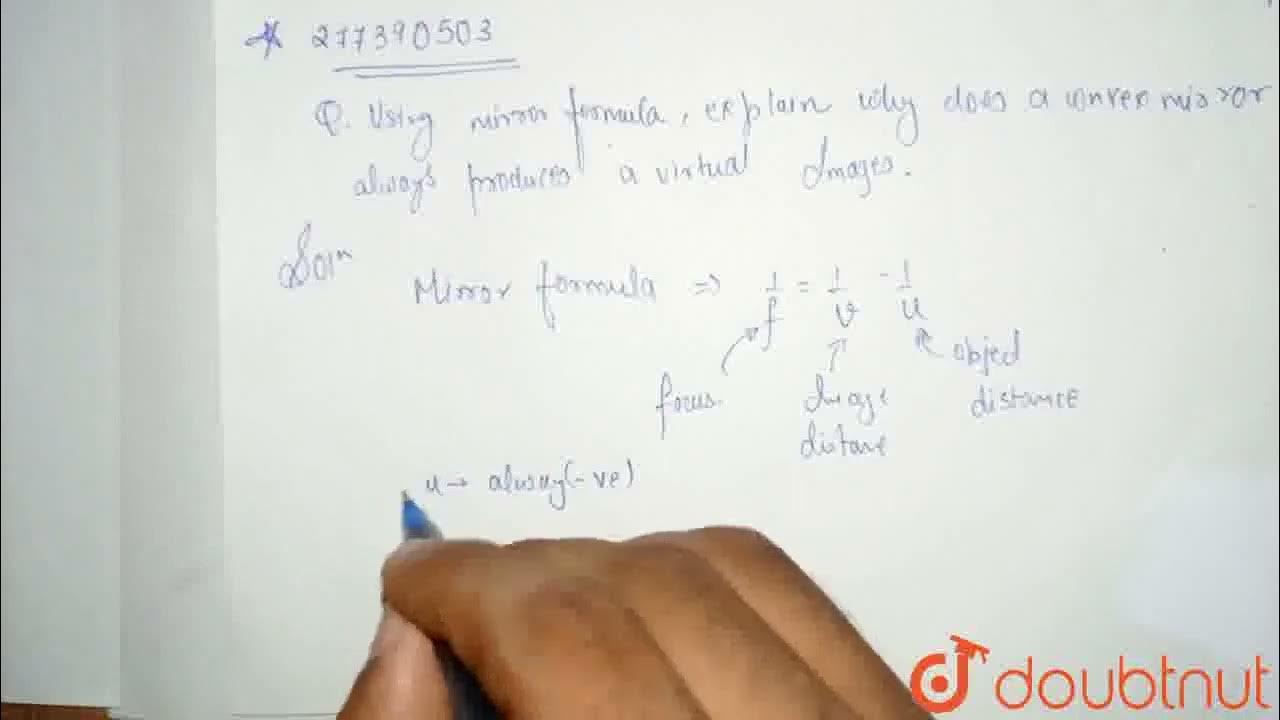 * 277390503
Q. Using mirror formula, explain why does a convex mirror
always produces a virtual Images.
Solⁿ
Mirror formula ⇒ 1/f = 1/v - 1/u
focus. Image distane object distance
u → alway(-ve)
doubtnut